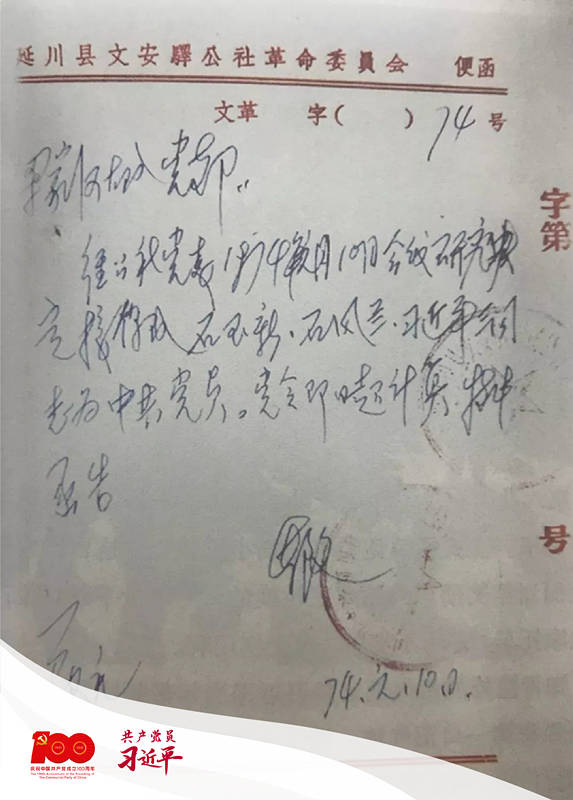 延川县文安驛公社革命委員会 便函
文革 字( ) 74 号
梁家河大队党支部:
字第
经公社党委1974年元月10日会议研究决
定接 石玉新、石凤兰、习近平 同
志为中共党员。党令即日起计算。特此
函告
号
74.元.10日.
100
庆祝中国共产党成立100周年
The 100th Anniversary of the Founding of
The Communist Party of China
共产党员
习近平